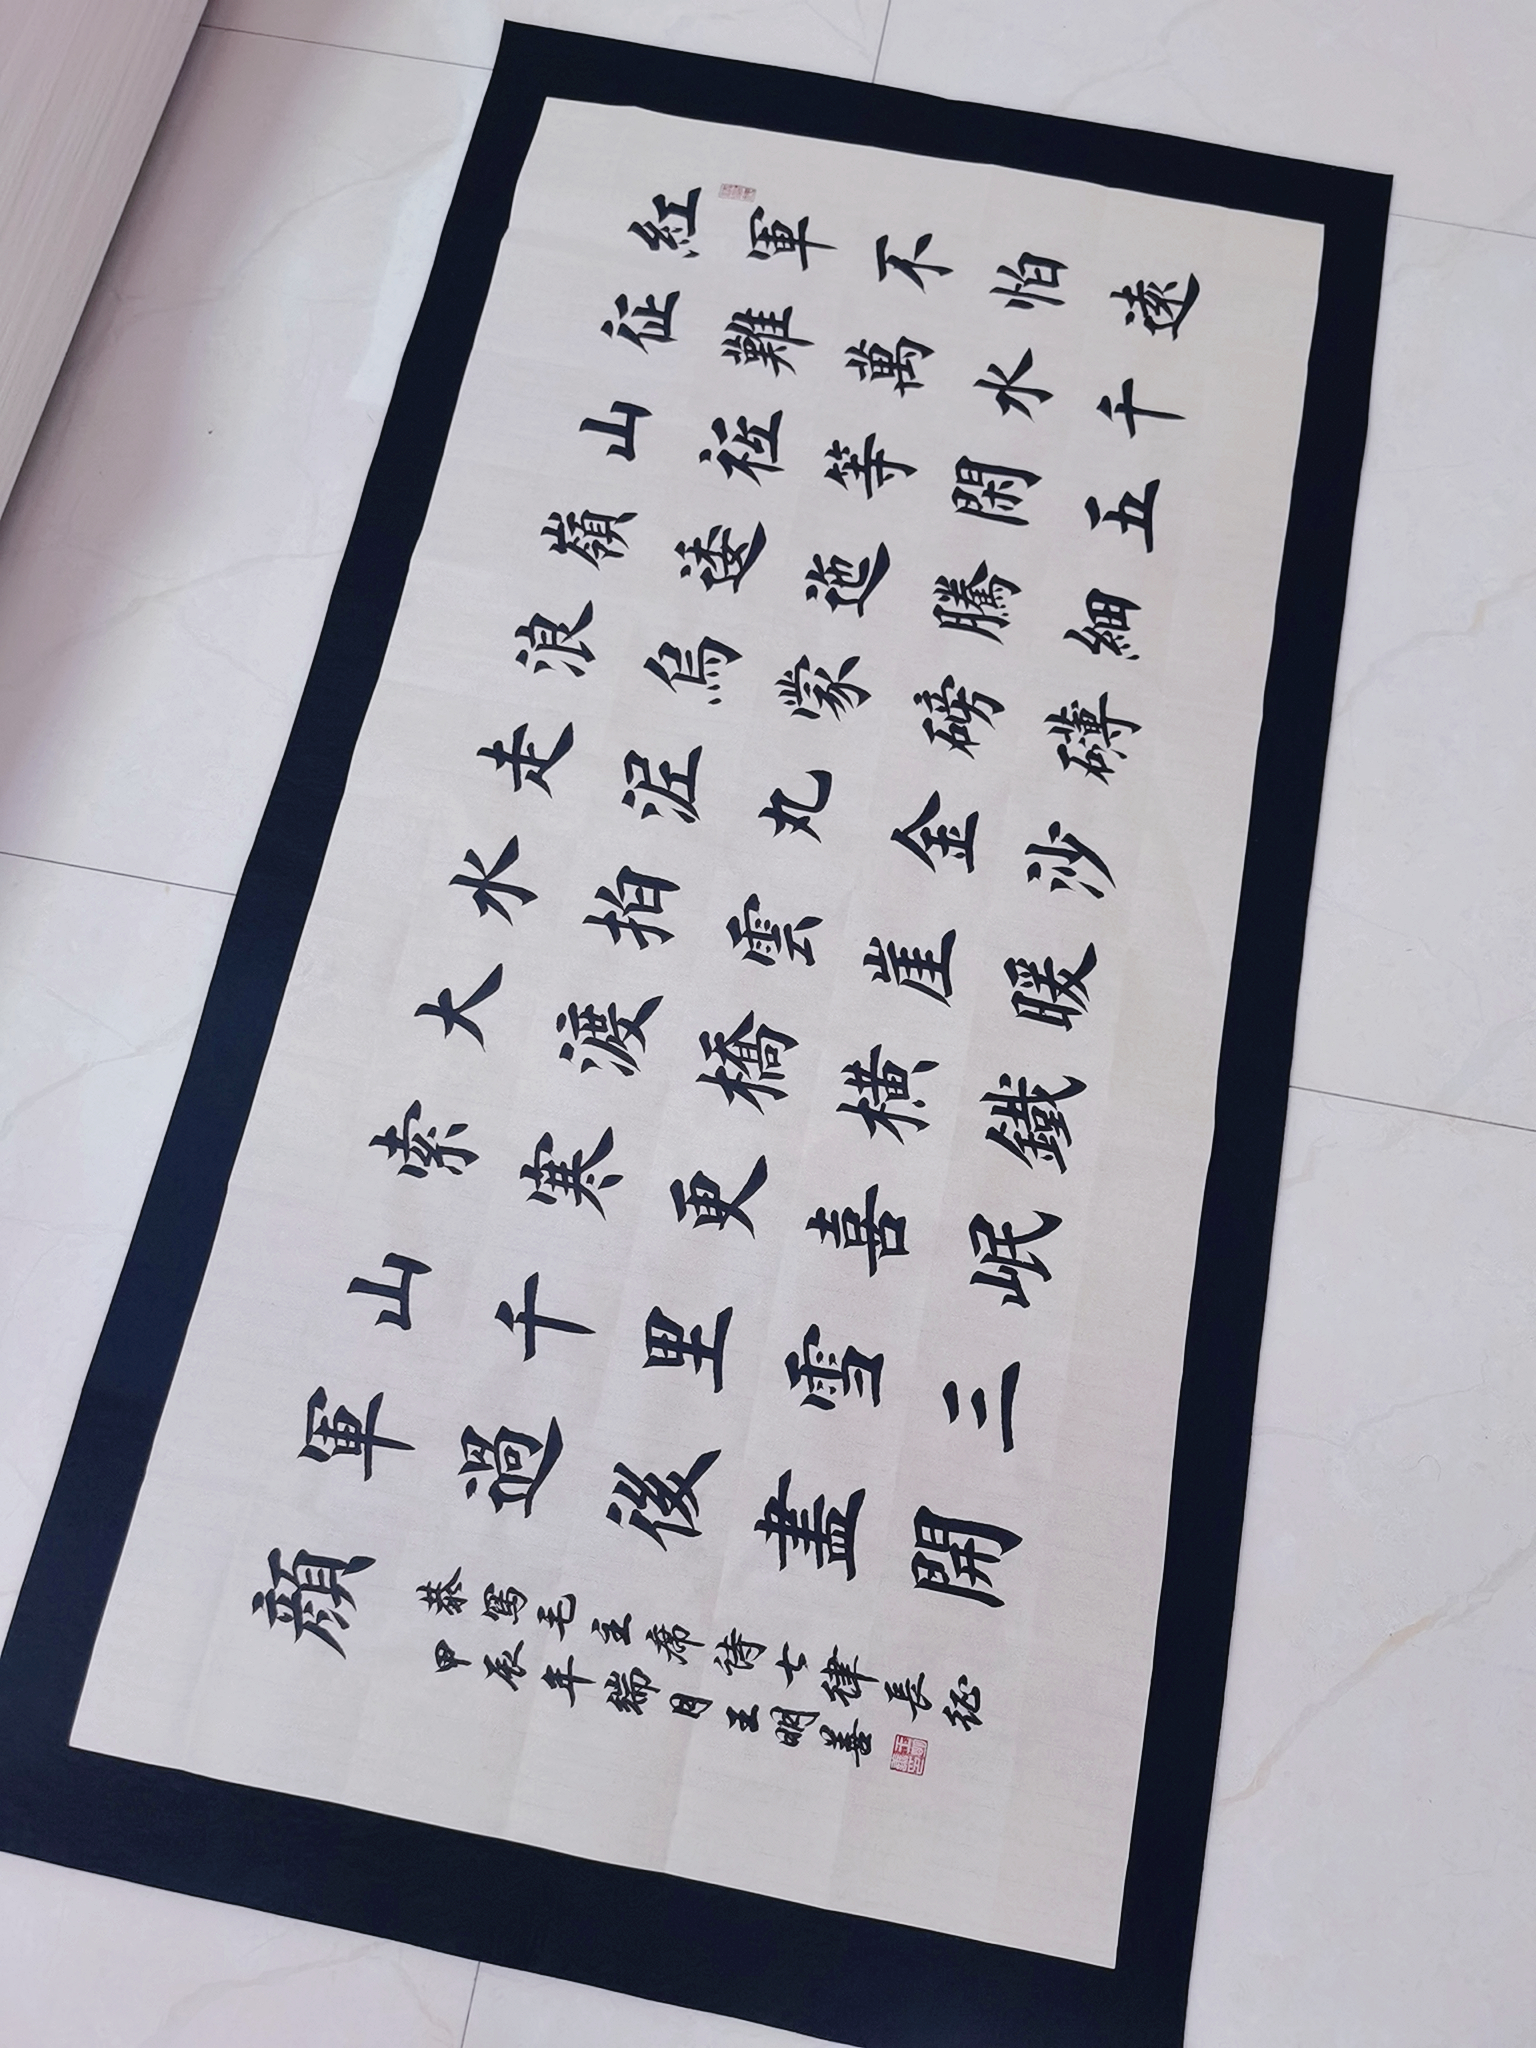 紅軍不怕遠
征難萬水千
山祇等閑五
嶺逶迤騰細
浪烏蒙磅礴
走泥丸金沙
水拍雲崖暖
大渡橋橫鐵
索寒更喜岷
山千里雪三
軍過後盡開
顏
恭寫毛主席詩七律長征
甲辰年端月王明善